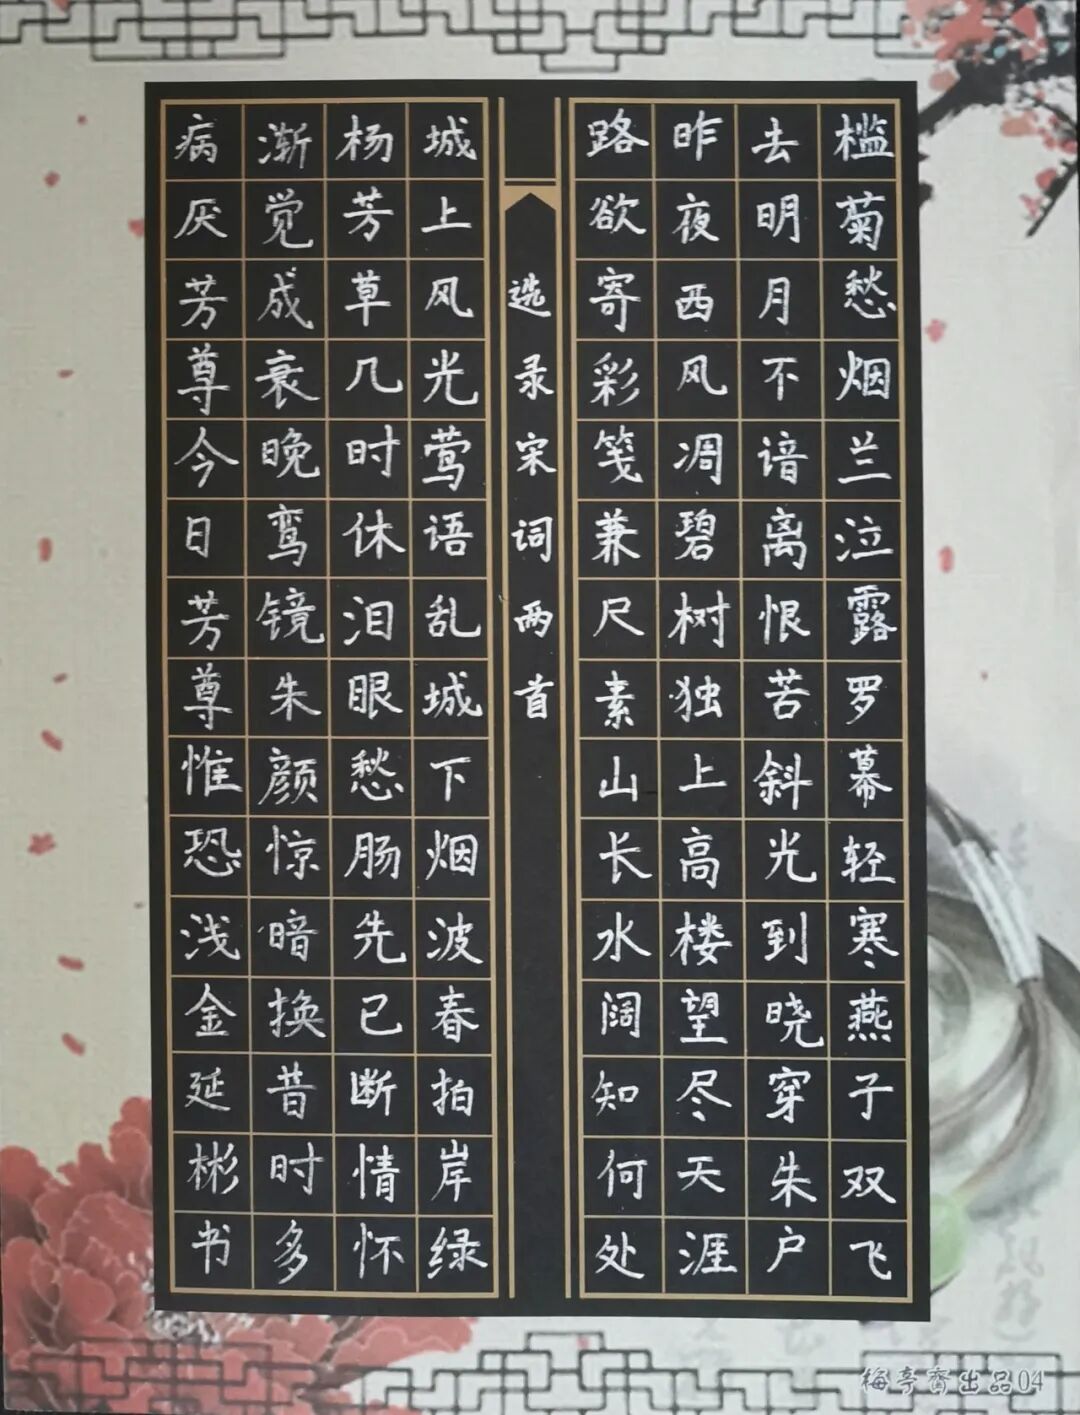 槛菊愁烟兰泣露罗幕轻寒燕子双飞
去明月不谙离恨苦斜光到晓穿朱户
昨夜西风凋碧树独上高楼望尽天涯
路欲寄彩笺兼尺素山长水阔知何处
选录宋词两首
城上风光莺语乱城下烟波春拍岸绿
杨芳草几时休泪眼愁肠先已断情怀
渐觉成衰晚鸾镜朱颜惊暗换昔时多
病厌芳尊今日芳尊惟恐浅金延彬书
梅亭斋出品04